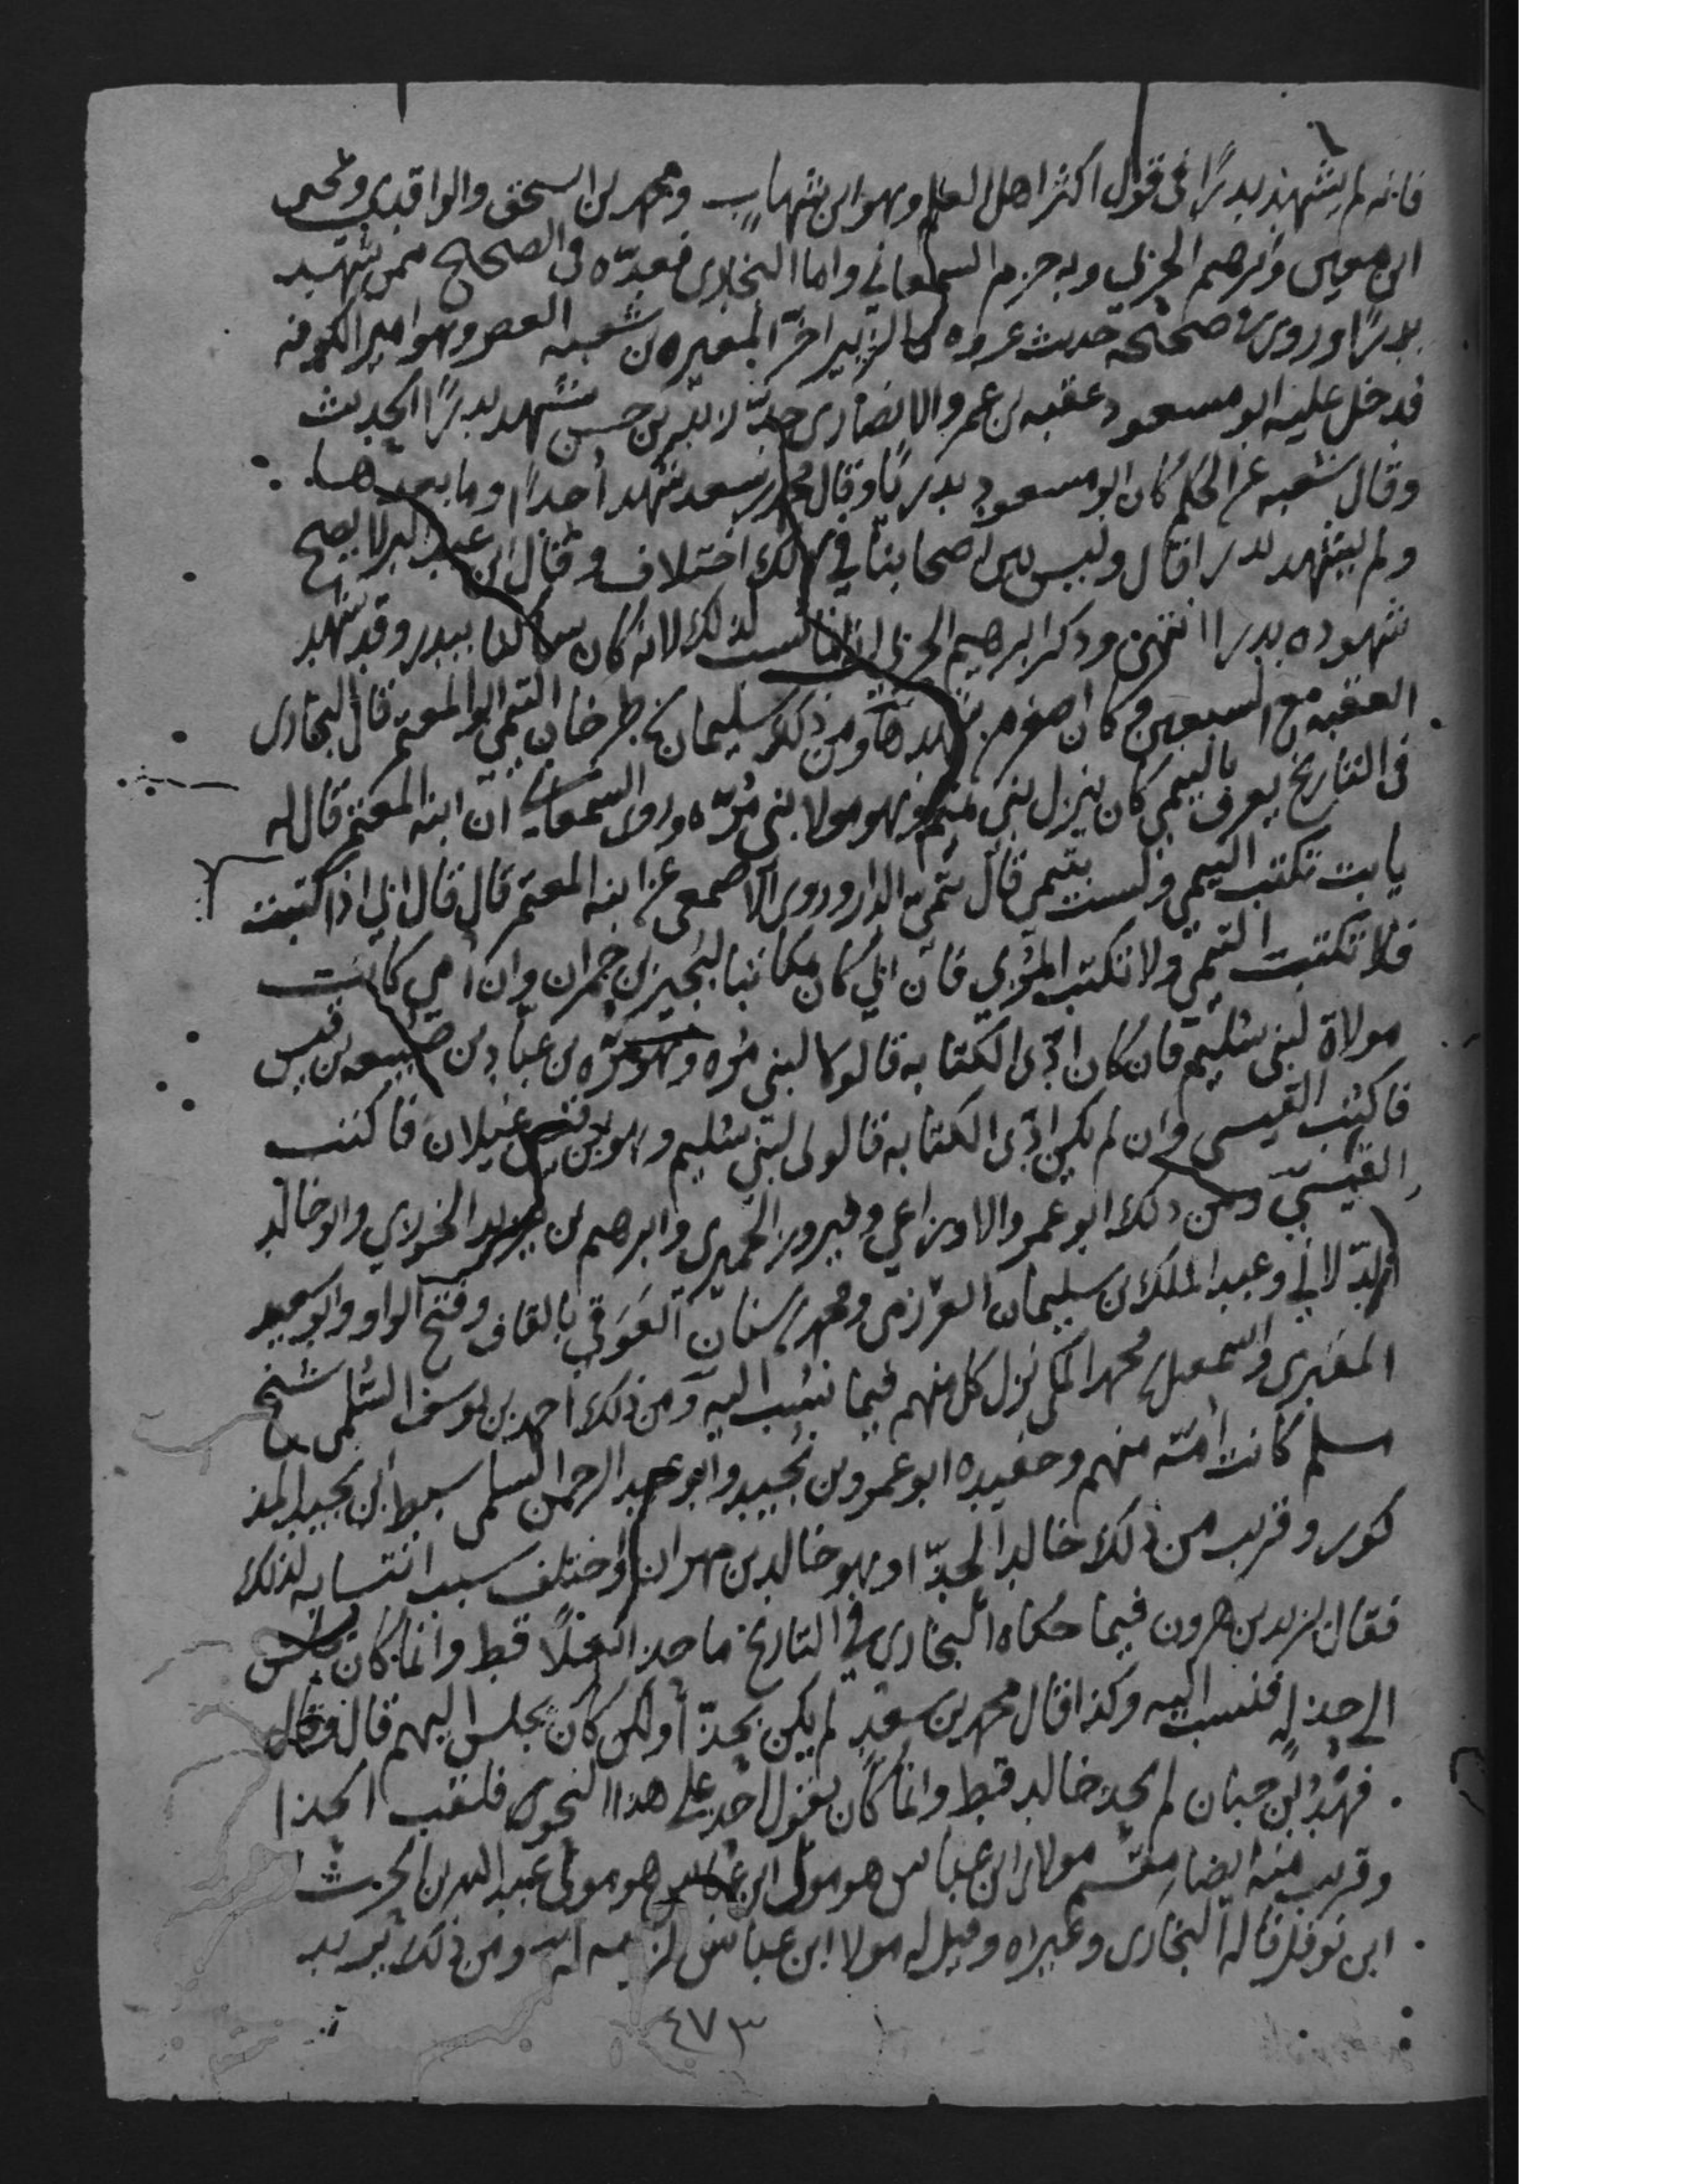 فانه لم يشهد بدرًا في قول اكثر اهل العلم وهو ابن شهاب ومحمد بن اسحق والواقدي ويحيى
ابن معين وابرهيم الحربي وبه جزم السمعاني واما البخاري فعدّه في الصحاح ممن شهد
بدرًا وروى في صحيحه حديث عروه بن الزبير اخّر المغيره بن شعبه العصر وهو امير الكوفه
فدخل عليه ابو مسعود عقبه بن عمرو الانصاري جدّ زيد بن حسن شهد بدرًا الحديث
وقال شعبه عن الحكم كان ابو مسعود بدريًا وقال محمد بن سعد شهد أحدًا وما بعدها
ولم يشهد بدرا قال وليس بين اصحابنا في ذلك اختلاف وقال ابن عبد البر لا يصح
شهوده بدرا انتهى وذكر ابرهيم الحربي انه انما نسب لذلك لانه كان ساكنا ببدر وقد شهد
العقبه مع السبعين وكان اصغر من شهدها ومن ذلك سليمان بن طرخان التيمي ابو المعتمر قال البخاري
في التاريخ يعرف بالتيمي كان ينزل بني تيم وهو مولا بني مُرّه وروى السمعاني ان ابنه المعتمر قال له
يا بت تكتب التيمي ولست بتيمي قال تيمي الدار وروى الاصمعي عن ابنه المعتمر قال قال ابي اذا كتبت
فلا تكتب التيمي ولا تكتب المُرّي فان ابي كان مكاتبا لبُجير بن حمران وان امي كانت
مولاة لبني سُليم فان كان ادّى الكتابه فالولا لبني مُره وهو مُرّه بن عبّاد بن ضبيعه بن قيس
فاكتب القيسي وان لم يكن ادّى الكتابه فالولى لبني سُليم وهو من قيس عيلان فاكتب
القيسيّ ومن ذلك ابو عمرو الاوزاعي وفيروز الحميري وابرهيم بن يزيد الخوزي وابو خالد
الدّالاني وعبد الملك بن سليمان العرزمي ومحمد بن سنان العَوَقي بالقاف وفتح الواو وابو سعيد
المقبري واسمعيل بن محمد المكي نزل كل منهم فيما نسب اليه ومن ذلك احمد بن يوسف السُلمي شيخ
مسلم كانت امّه منهم وحفيده ابو عمرو بن نجيد وابو عبد الرحمن السلمي سبط ابن نجيد المذ
كور وقريب من ذلك خالد الحذّا وهو خالد بن مهران واختلف سبب انتسابه لذلك
فقال يزيد بن هرون فيما حكاه البخاري في التاريخ ما حذا نعلًا قط وانما كان يجلس
الى حذا فنسب اليه وكذا قال محمد بن سعد لم يكن بحذّا ولكن كان يجلس اليهم قال وقال
فهد بن حبان لم يحذ خالد قط وانما كان يقول احذ على هذا النحو فلقب الحذا
وقريب منه ايضا مقسم مولا ابن عباس هو مولى عبد الله بن الحرث
ابن نوفل قاله البخاري وغيره وقيل له مولا ابن عباس للزومه اياه ومن ذلك يزيد
٤٧٣